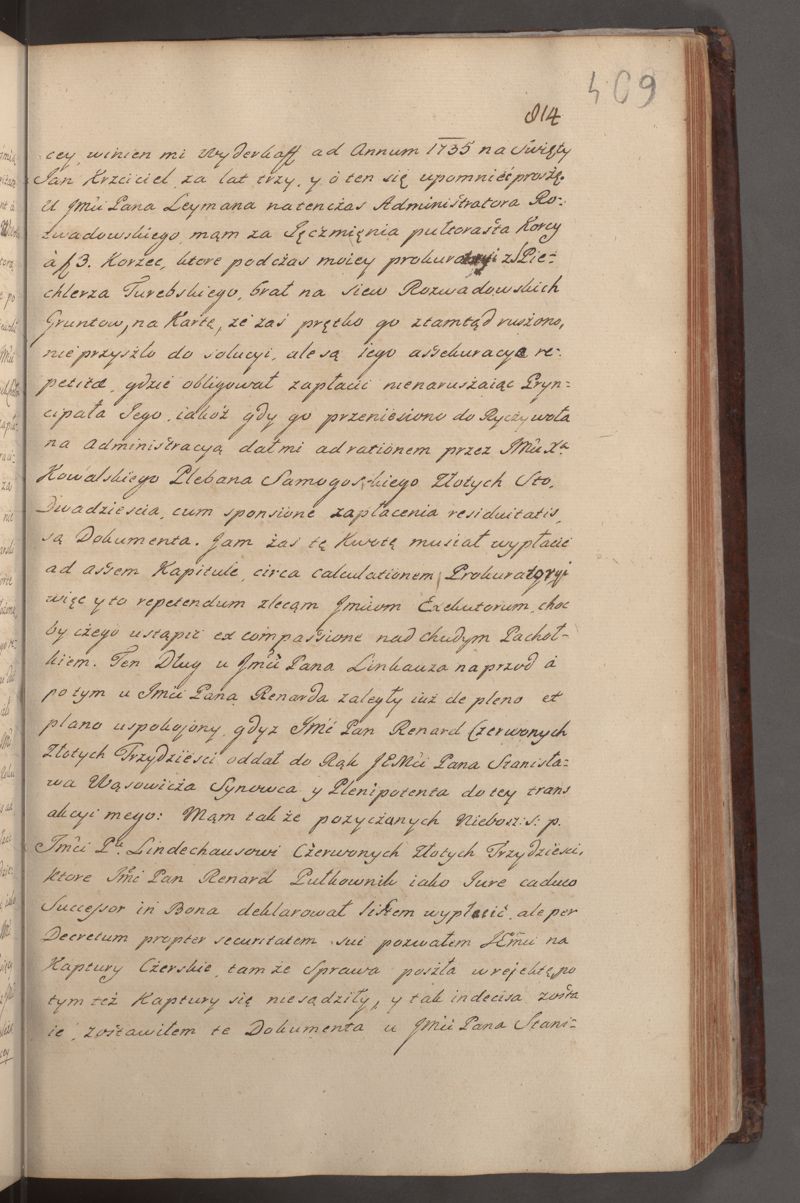 409
814
cey, winien mi Wyderkaff ad Annum 1735 na Swięty
Jan Krzciciel za lat trzy, y o ten się upomnieć proszę.
U Jmći Pana Leymana natenczas Administratora Ro-
zwadowskiego, mąm za Jęczmięnia pułtorasta Korcy
à f 3. Korzec, ktore podczas moiey prokuratoryi z Pie-
chlerza Turebskiego, brał na siew Rozwadowskich
Gruntow, na Kartę, że zaś prętko go ztamtąd ruszono,
nie przyszło do solucyi, ale są iego assekuracye re-
petitæ, gdzie obligował zapłacić nienaruszaiąc Pryn-
cipała Jego, iakoż gdy go przeniesiono do Ryczywoła
na Administracyą dał mi ad rationem przez Jmći X.
Kowalskiego Plebana Samogoskiego Złotych Sto,
Dwadzieścia, cum sponsione zapłacenia residuitatis,
są Dokumenta. Jam zas tę Kwotę musiał wypłacić
ad assem Kapitule, circa calculationem Prokuratoryi
więc y to repetendum zlecąm Jmćiom Exekutorum, choc
by czego ustąpić ex compassione nad chudym Pachoł-
kiem. Ten Dług u Jmći Pana Linkauza naprzod à
potym u Jmći Pana Renarda zaległy iuż de pleno et
plano uspokojony, gdyz Jmć Pan Renard Czerwonych
Złotych Trzydzieści oddał do Rąk JEMći Pana Stanisła-
wa Wąsowicza Synowca y Plenipotenta do tey trans
akcyi mego: Mąm także pozyczanych Niebosz: s: p.
Jmći P. Lindechausowi Czerwonych Złotych Trzydzieści,
ktore Jmć Pan Renard Pułkownik iako Jure caduco
Successor in Bona deklarował listem wypłacić, ale per
Decretum propter securitatem sui pozwałem JEmći na
Kaptury Czerskie, tam że Sprawa poszła w rejektę, po
tym też Kaptury się niesądziły, y tak indecisa zosta
ie, zostawiłem te Dokumenta u Jmći Pana Stani-